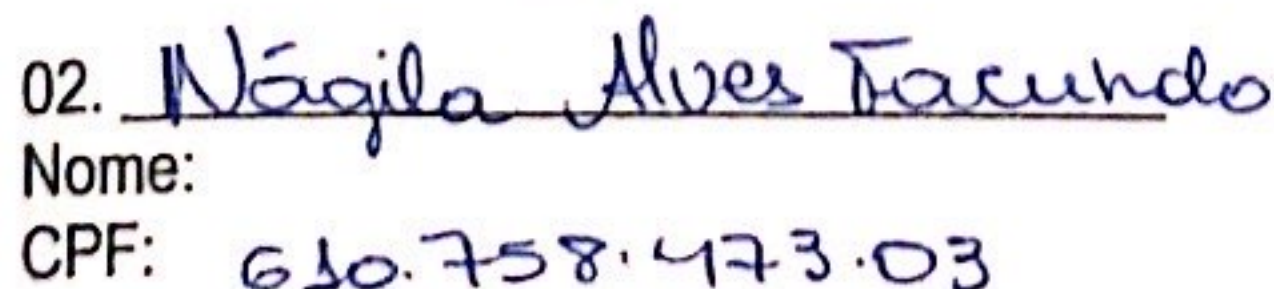 02. Nágila Alves Facundo
Nome:
CPF: 610.758.473.03